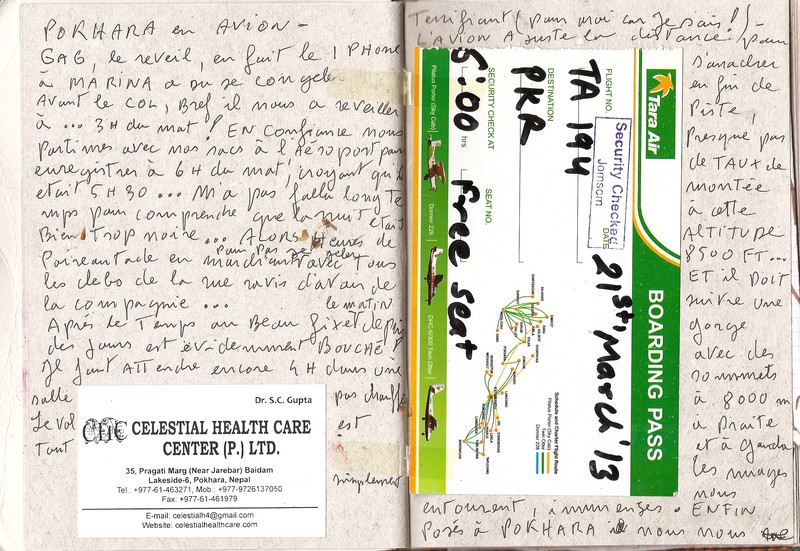 POKHARA en AVION -
GAG, le reveil, en fait le IPHONE
à MARINA a du se congeler
Avant le COL, Bref il nous a reveiller
à ... 3H du mat ! EN Confiance nous
partimes avec nos sacs à l'Aéroport pour
enregistrer à 6H du mat, croyant qu'il
etait 5H30 ... M'a pas fallu long te
mps pour comprendre que la nuit etait
Bien trop noire ... ALORS 4 Heures de
Poireautade en
pour pas se geler
avec tous
les clebs de la rue ravis d'avan
la compagnie ...
le matin
Après le Temps au Beau fixe depuis
des jours est évidemment BOUCHÉ !
Il faut Attendre encore 4H dans une
salle
pas chauffée
Le vol
est
Tout
simplement
Dr. S.C. Gupta
CHC CELESTIAL HEALTH CARE
CENTER (P.) LTD.
35, Pragati Marg (Near Jarebar) Baidam
Lakeside-6, Pokhara, Nepal
Tel.: +977-61-463271, Mob.: +977-9726137050
Fax: +977-61-461979
E-mail: celestialh4@gmail.com
Website: celestialhealthcare.com
Terrifiant (pour moi car je sais !) -
L'AVION A juste la distance pour
s'arracher
en fin de
Piste,
Presque pas
de TAUX de
montée
à cette
ALTITUDE
8500 FT...
ET il DOIT
suivre une
gorge
avec des
sommets
à 8000 m
à Droite
et à Gauche
les nuages
nous
entourent, immenses. ENFIN
posés à POKHARA nous nous
Tara Air
BOARDING PASS
FLIGHT NO.
TA 194
DATE
21st, March '13
Security Checked
Jomsom
DESTINATION
PKR
SECURITY CHECK AT
5:00 hrs
SEAT NO.
Free Seat
Schedule and Charter Flight Route
Pilatus Porter (Sky Cab)
Twin Otter
Dornier 228
Pilatus Porter (Sky Cab)
Dornier 228
DHC-6/300 Twin Otter